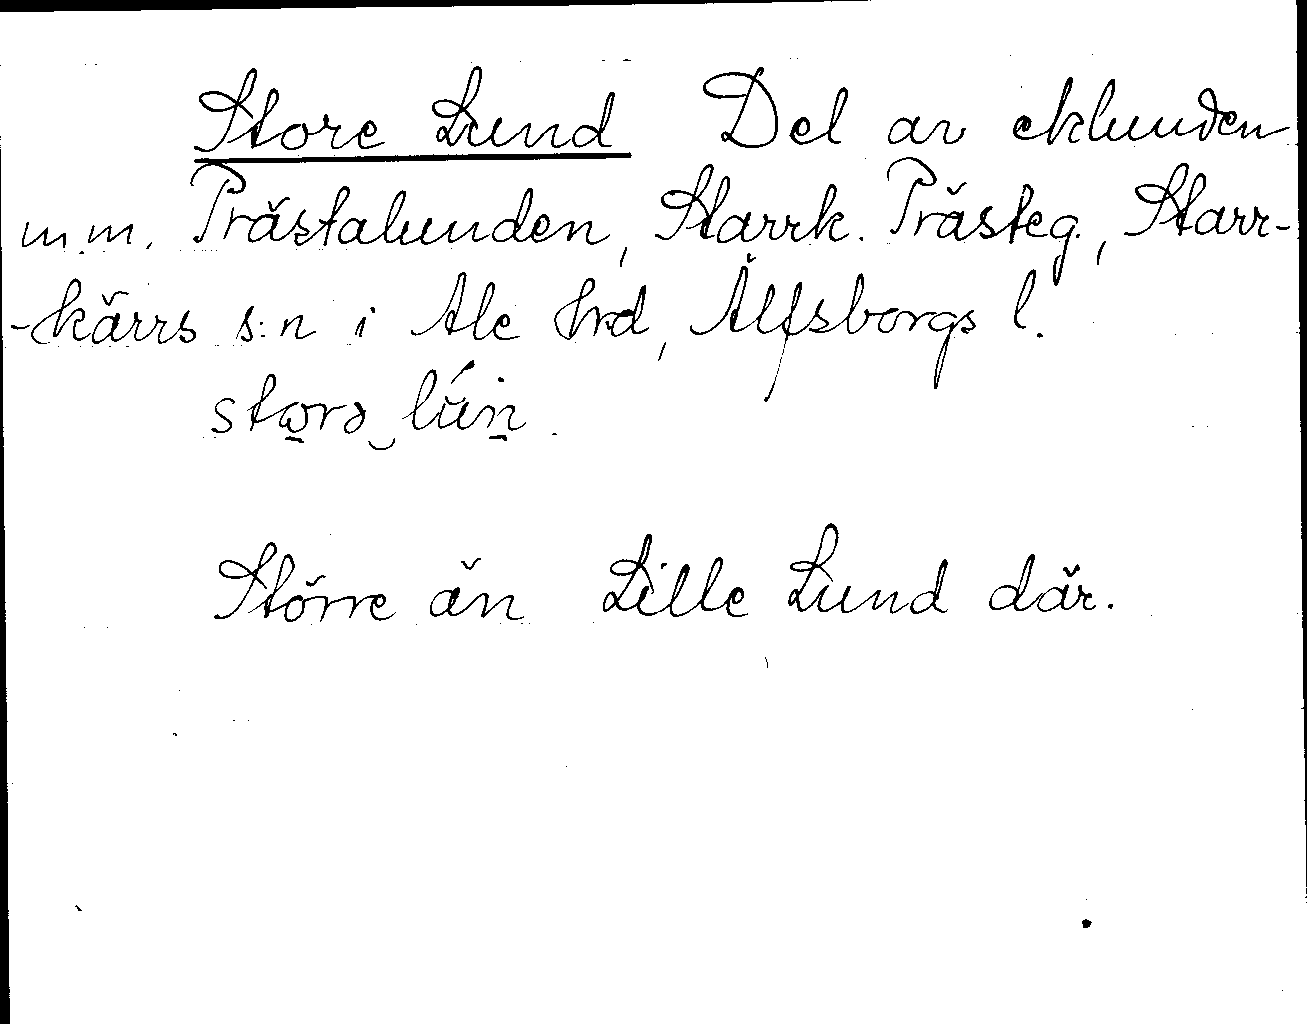 Store Lund Del av eklunden
m.m. Prästalunden, Starrk. Prästeg., Starr-
-kärrs s:n i Ale hrd, Älfsborgs l.
Större än Lille Lund där.